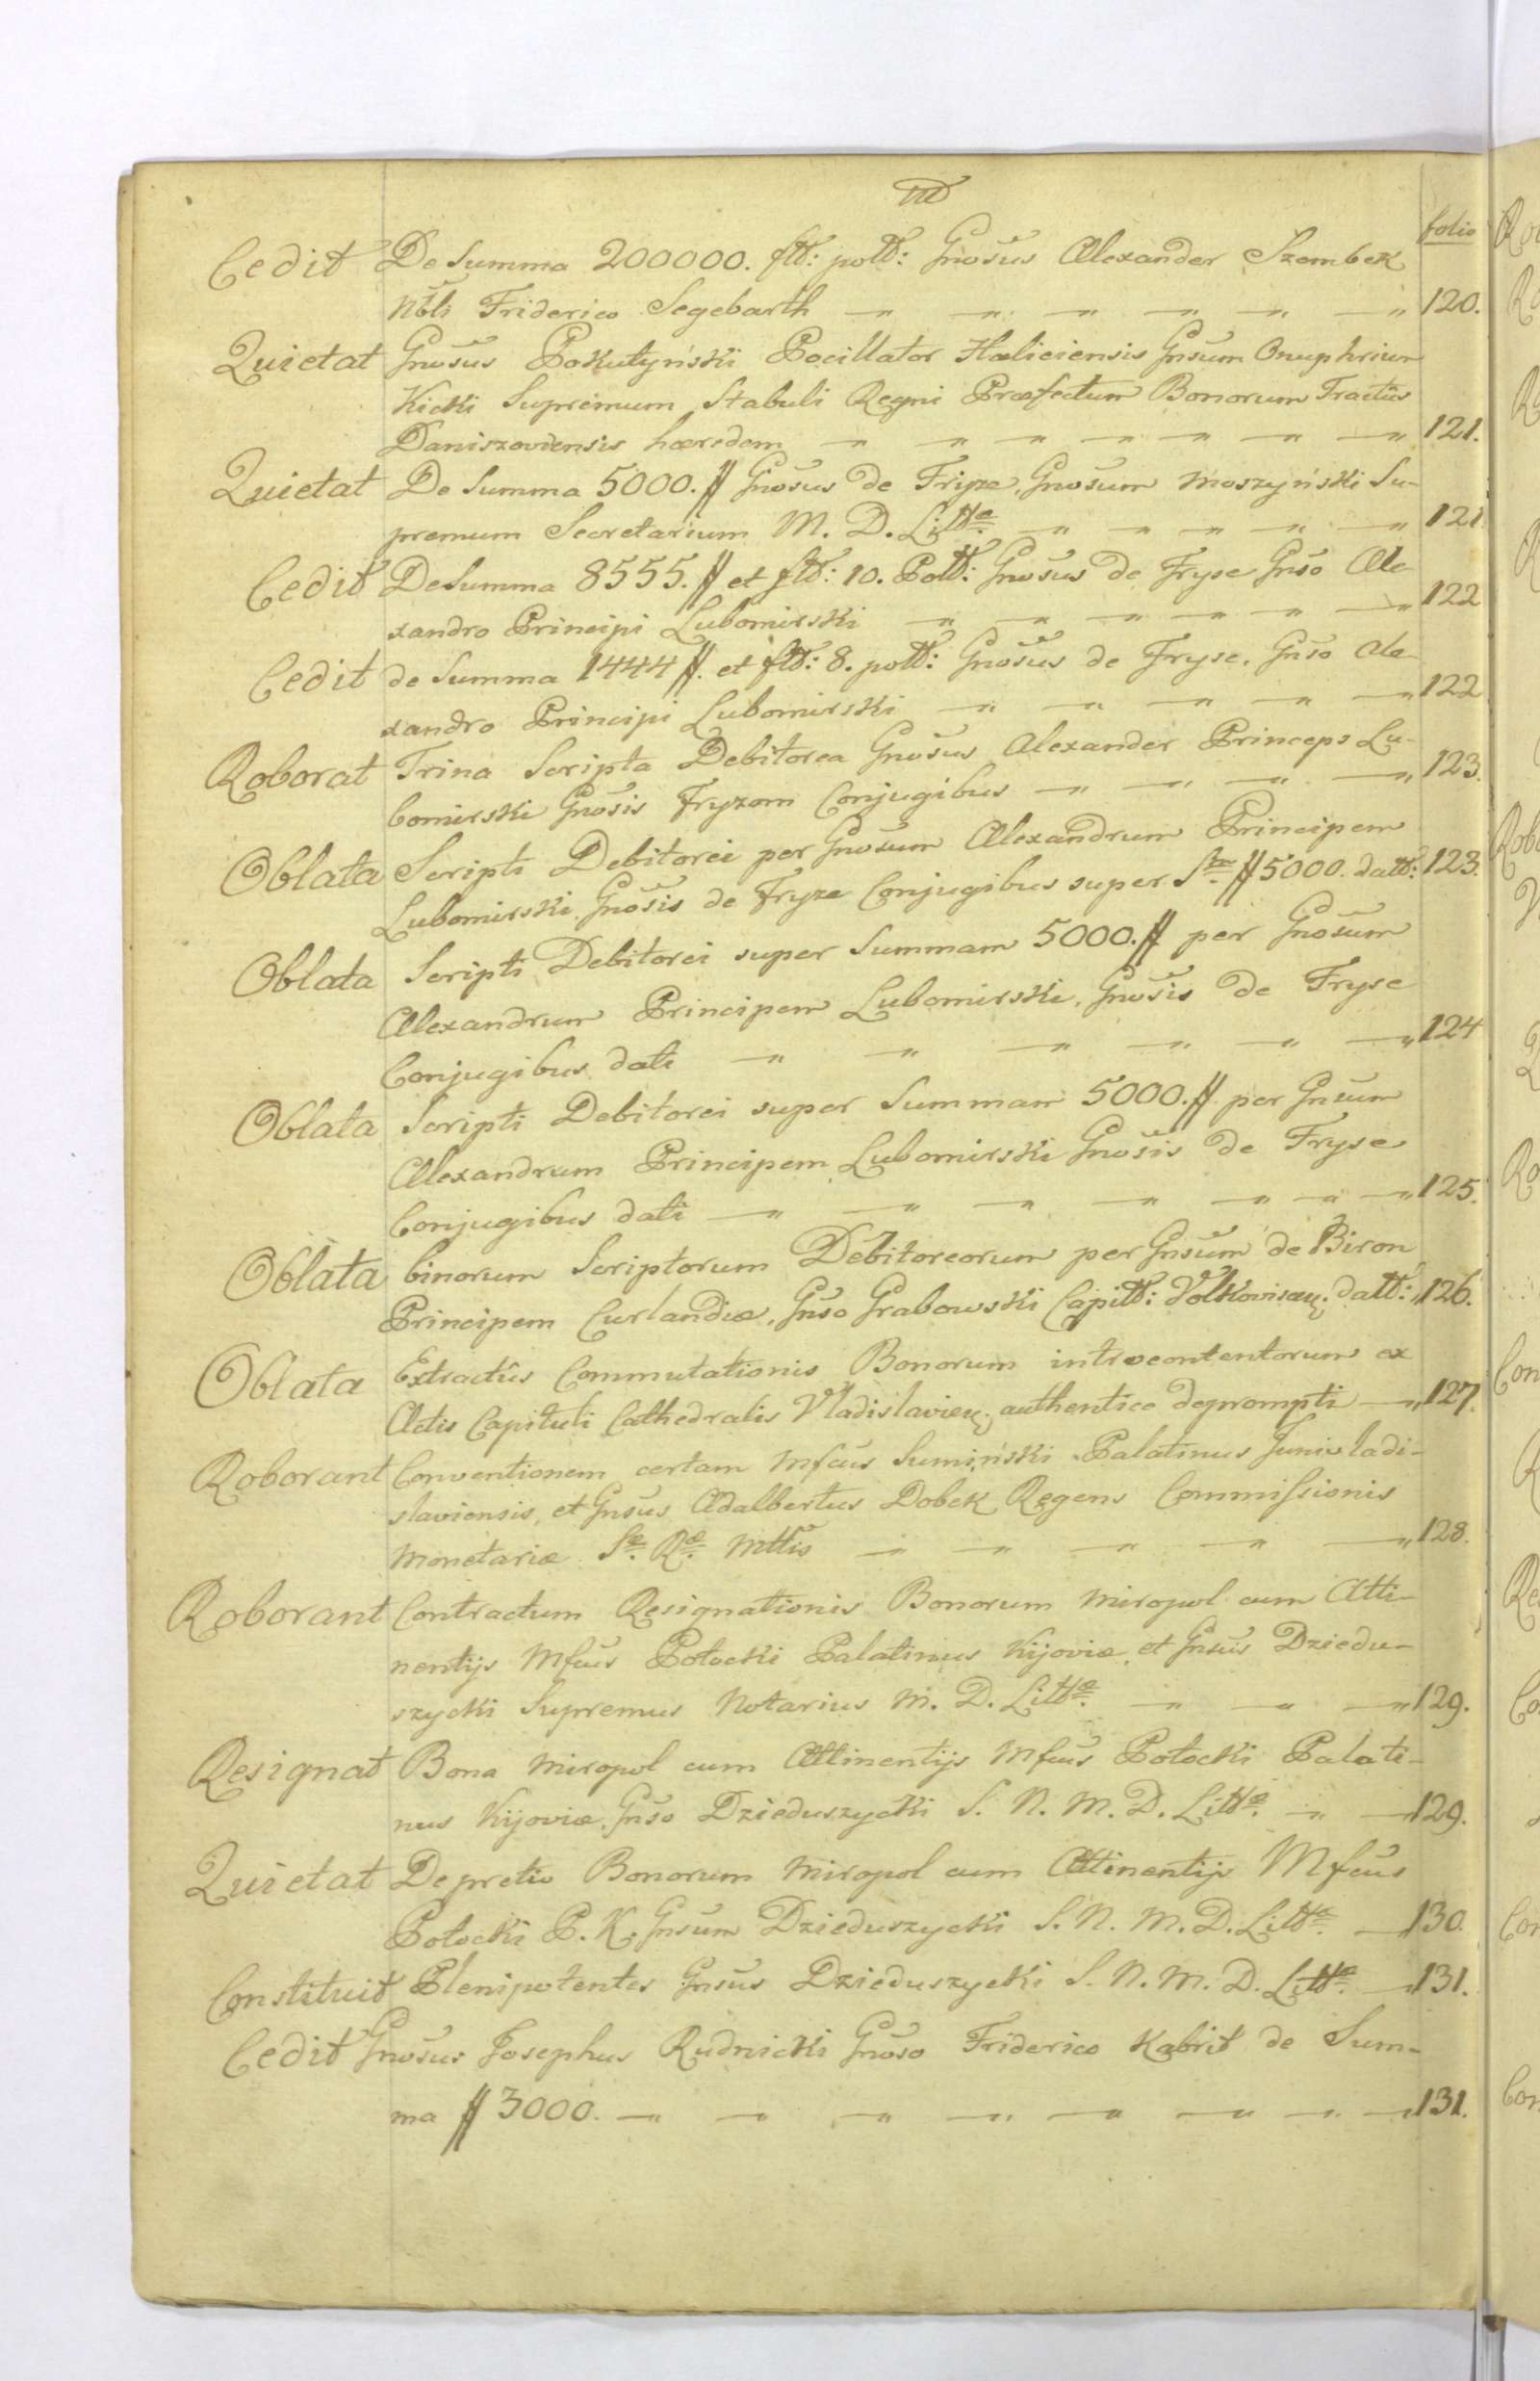 folio
Cedit De Summa 200000. fltt: pott: Gnosus Alexander Szembek
Nbli Friderico Segebarth 120.
Quietat Gnosus Pokutyński Pocillator Haliciensis Gnsum Onuphrium
Kicki Supremum Stabuli Regni Præfectum Bonorum Tractûs
Daniszoviensis hæredem 121.
Quietat De Summa 5000. # Gnosus de Fryze, Gnosum Moszyński Su-
premum Secretarium M. D. Littæ 121
Cedit De Summa 8555. # et fltt: 10. Pott: Gnosus de Fryse Gnso Ale-
xandro Principi Lubomirski 122
Cedit de Summa 1444 #. et fltt: 8. pott: Gnosus de Fryse, Gnso Ale-
xandro Principi Lubomirski 122
Roborat Trina Scripta Debitorea Gnosus Alexander Princeps Lu-
bomirski Gnosis Fryzom Conjugibus 123.
Oblata Scripti Debitorei per Gnosum Alexandrum Principem
Lubomirski Gnosis de Fryze Conjugibus super Sm # 5000. datt: 123.
Oblata Scripti Debitorei super Summam 5000. # per Gnosum
Alexandrum Principem Lubomirski, Gnosis de Fryse
Conjugibus dati 124
Oblata Scripti Debitorei super Summam 5000. #. per Gnsum
Alexandrum Principem Lubomirski Gnosis de Fryse
Conjugibus dati 125.
Oblata binorum Scriptorum Debitoreorum per Gnsum de Biron
Principem Curlandiæ, Gnso Grabowski Capitt: Volkovisen; datt: 126.
Oblata Extractûs Commutationis Bonorum introcontentorum ex
Actis Capituli Cathedralis Vladislavien; authentice deprompti 127.
Roborant Conventionem certam Mfcus Sumiński Palatinus Junivladi-
slaviensis, et Gnsus Adalbertus Dobek Regens Commissionis
Monetariæ Sæ Ræ Mttis 128.
Roborant Contractum Resignationis Bonorum Miropol cum Atti-
nentijs Mfcus Potocki Palatinus Kijoviæ, et Gnsus Dziedu-
szycki Supremus Notarius M. D. Littæ 129.
Resignat Bona Miropol cum Attinentijs Mfcus Potocki Palati-
nus Kijoviæ, Gnso Dzieduszycki S. N. M. D. Littæ 129.
Quietat De pretio Bonorum Miropol cum Attinentijs Mfcus
Potocki P. K. Gnsum Dzieduszycki S. N. M. D. Littæ 130.
Constituit Plenipotentes Gnsus Dzieduszycki S. N. M. D. Littæ 131.
Cedit Gnosus Josephus Rudnicki Gnoso Friderico Kabrit de Sum-
ma # 3000. 131.